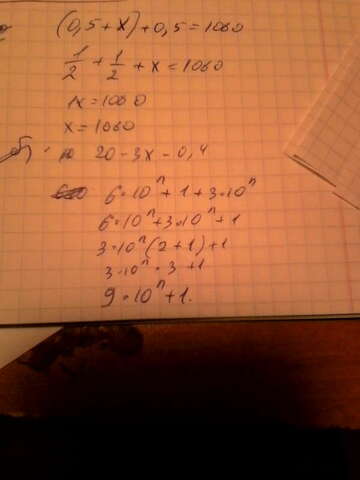 (0,5 + x) + 0,5 = 1060
1/2 + 1/2 + x = 1060
1x = 1060
x = 1060
20 - 3x - 0,4
6·10ⁿ + 1 + 3·10ⁿ
6·10ⁿ + 3·10ⁿ + 1
3·10ⁿ (2 + 1) + 1
3·10ⁿ · 3 + 1
9·10ⁿ + 1.